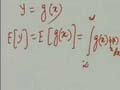 y = g(x)
E[y] = E[g(x)] = ∫ g(x)